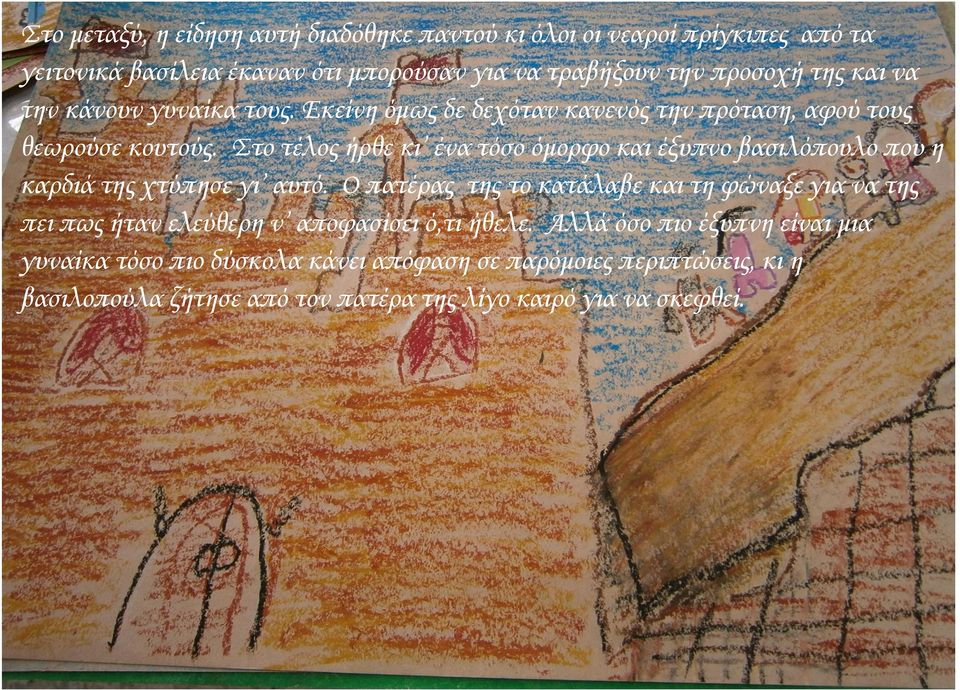 Στο μεταξύ, η είδηση αυτή διαδόθηκε παντού κι όλοι οι νεαροί πρίγκιπες από τα
γειτονικά βασίλεια έκαναν ότι μπορούσαν για να τραβήξουν την προσοχή της και να
την κάνουν γυναίκα τους. Εκείνη όμως δε δεχόταν κανενός την πρόταση, αφού τους
θεωρούσε κουτούς. Στο τέλος ήρθε κι’ ένα τόσο όμορφο και έξυπνο βασιλόπουλο που η
καρδιά της χτύπησε γι’ αυτό. Ο πατέρας της το κατάλαβε και τη φώναξε για να της
πει πως ήταν ελεύθερη ν’ αποφασίσει ό,τι ήθελε. Αλλά όσο πιο έξυπνη είναι μια
γυναίκα τόσο πιο δύσκολα κάνει απόφαση σε παρόμοιες περιπτώσεις, κι η
βασιλοπούλα ζήτησε από τον πατέρα της λίγο καιρό για να σκεφθεί.